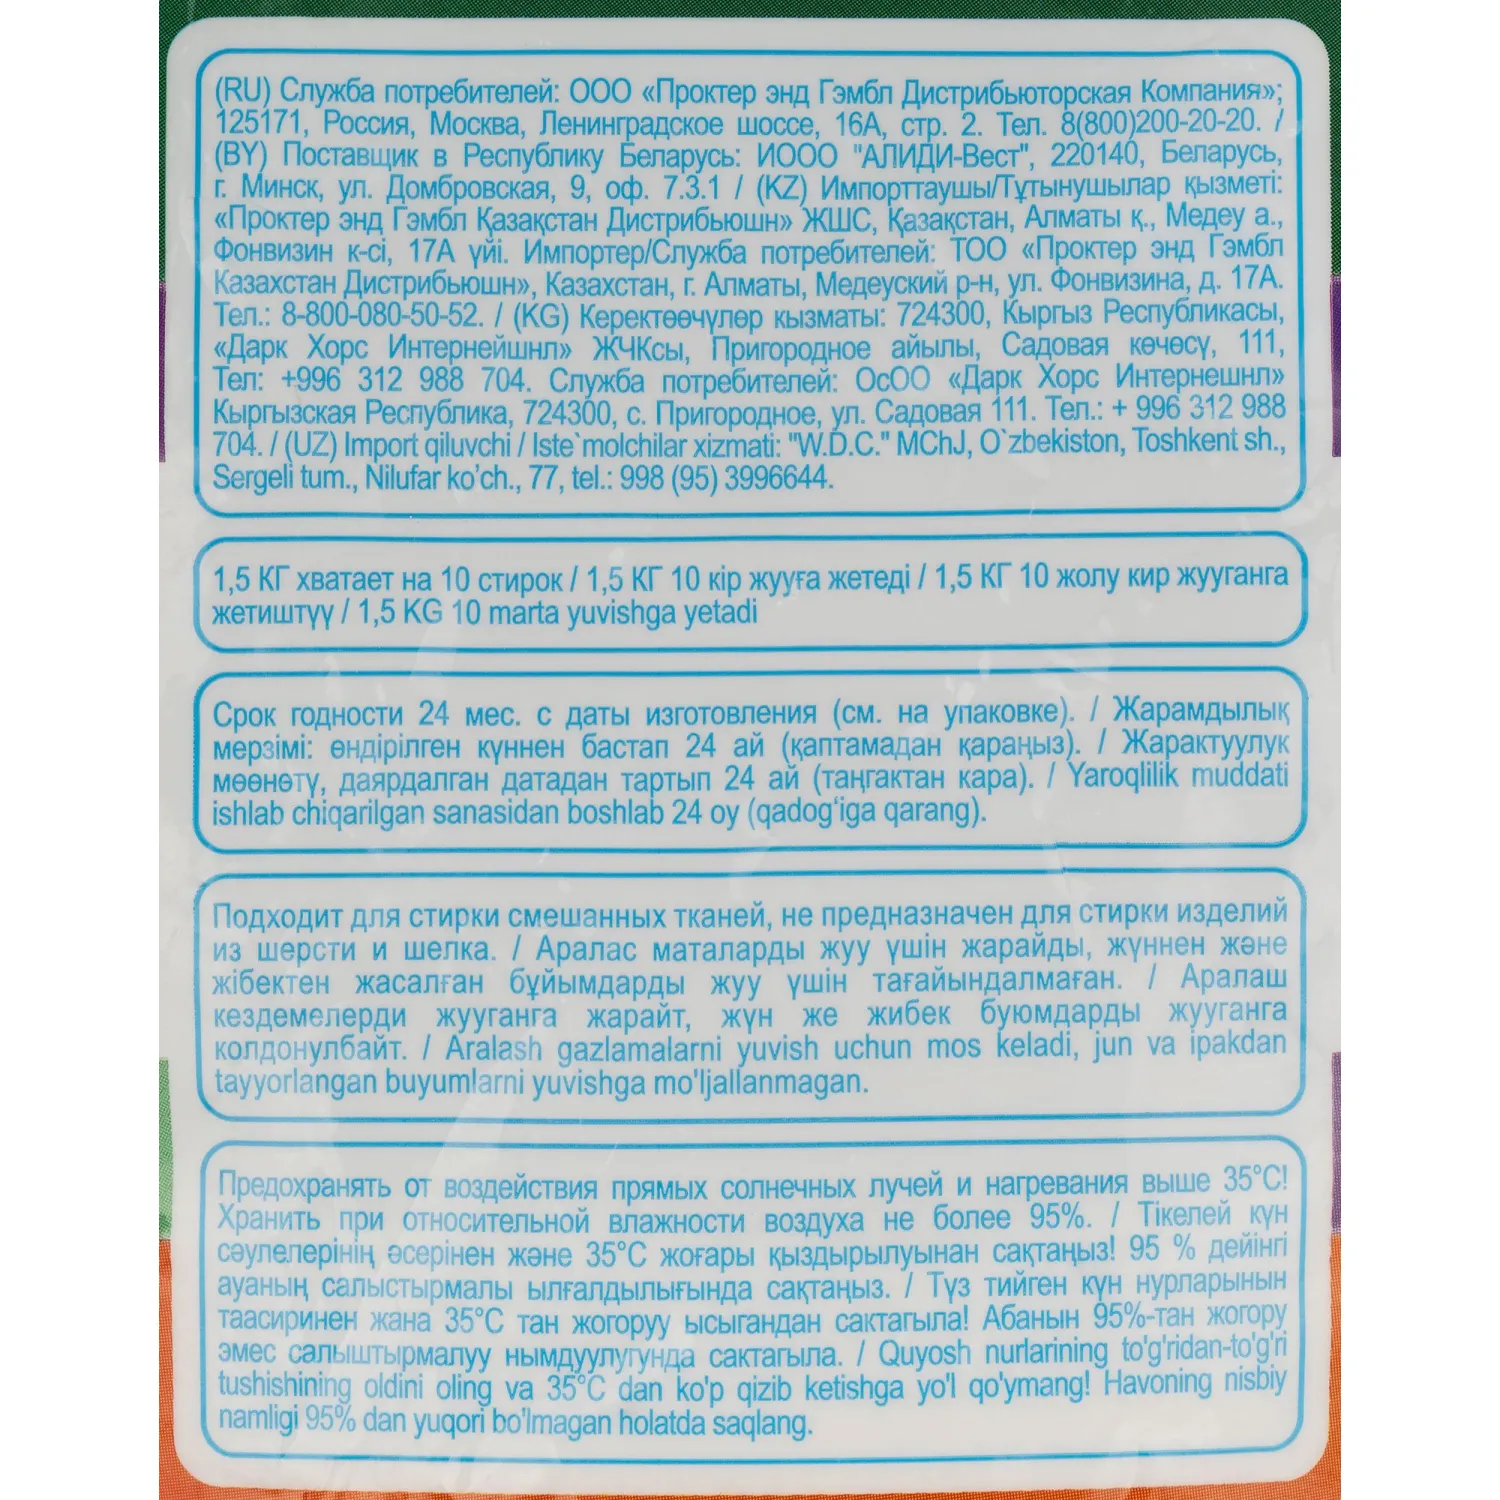 (RU) Служба потребителей: ООО «Проктер энд Гэмбл Дистрибьюторская Компания»;
125171, Россия, Москва, Ленинградское шоссе, 16А, стр. 2. Тел. 8(800)200-20-20. /
(BY) Поставщик в Республику Беларусь: ИООО "АЛИДИ-Вест", 220140, Беларусь,
г. Минск, ул. Домбровская, 9, оф. 7.3.1 / (KZ) Импорттаушы/Тұтынушылар қызметі:
«Проктер энд Гэмбл Қазақстан Дистрибьюшн» ЖШС, Қазақстан, Алматы қ., Медеу а.,
Фонвизин к-сі, 17А үйі. Импортер/Служба потребителей: ТОО «Проктер энд Гэмбл
Казахстан Дистрибьюшн», Казахстан, г. Алматы, Медеуский р-н, ул. Фонвизина, д. 17А.
Тел.: 8-800-080-50-52. / (KG) Керектөөчүлөр кызматы: 724300, Кыргыз Республикасы,
«Дарк Хорс Интернейшнл» ЖЧКсы, Пригородное айылы, Садовая көчөсү, 111,
Тел: +996 312 988 704. Служба потребителей: ОсОО «Дарк Хорс Интернешнл»
Кыргызская Республика, 724300, с. Пригородное, ул. Садовая 111. Тел.: + 996 312 988
704. / (UZ) Import qiluvchi / Iste`molchilar xizmati: "W.D.C." MChJ, O`zbekiston, Toshkent sh.,
Sergeli tum., Nilufar ko’ch., 77, tel.: 998 (95) 3996644.
1,5 КГ хватает на 10 стирок / 1,5 КГ 10 кір жууға жетеді / 1,5 КГ 10 жолу кир жууганга
жетиштүү / 1,5 KG 10 marta yuvishga yetadi
Срок годности 24 мес. с даты изготовления (см. на упаковке). / Жарамдылық
мерзімі: өндірілген күннен бастап 24 ай (қаптамадан қараңыз). / Жарактуулук
мөөнөтү, даярдалган датадан тартып 24 ай (таңгактан кара). / Yaroqlilik muddati
ishlab chiqarilgan sanasidan boshlab 24 oy (qadog‘iga qarang).
Подходит для стирки смешанных тканей, не предназначен для стирки изделий
из шерсти и шелка. / Аралас маталарды жуу үшін жарайды, жүннен және
жібектен жасалған бұйымдарды жуу үшін тағайындалмаған. / Аралаш
кездемелерди жууганга жарайт, жүн же жибек буюмдарды жууганга
колдонулбайт. / Aralash gazlamalarni yuvish uchun mos keladi, jun va ipakdan
tayyorlangan buyumlarni yuvishga mo'ljallanmagan.
Предохранять от воздействия прямых солнечных лучей и нагревания выше 35°С!
Хранить при относительной влажности воздуха не более 95%. / Тікелей күн
сәулелерінің әсерінен және 35°С жоғары қыздырылуынан сақтаңыз! 95 % дейінгі
ауаның салыстырмалы ылғалдылығында сақтаңыз. / Түз тийген күн нурларынын
таасиринен жана 35°С тан жогоруу ысыгандан сактагыла! Абанын 95%-тан жогору
эмес салыштырмалуу нымдуулугунда сактагыла. / Quyosh nurlarining to'g'ridan-to'g'ri
tushishining oldini oling va 35°C dan ko'p qizib ketishga yo'l qo'ymang! Havoning nisbiy
namligi 95% dan yuqori bo'lmagan holatda saqlang.